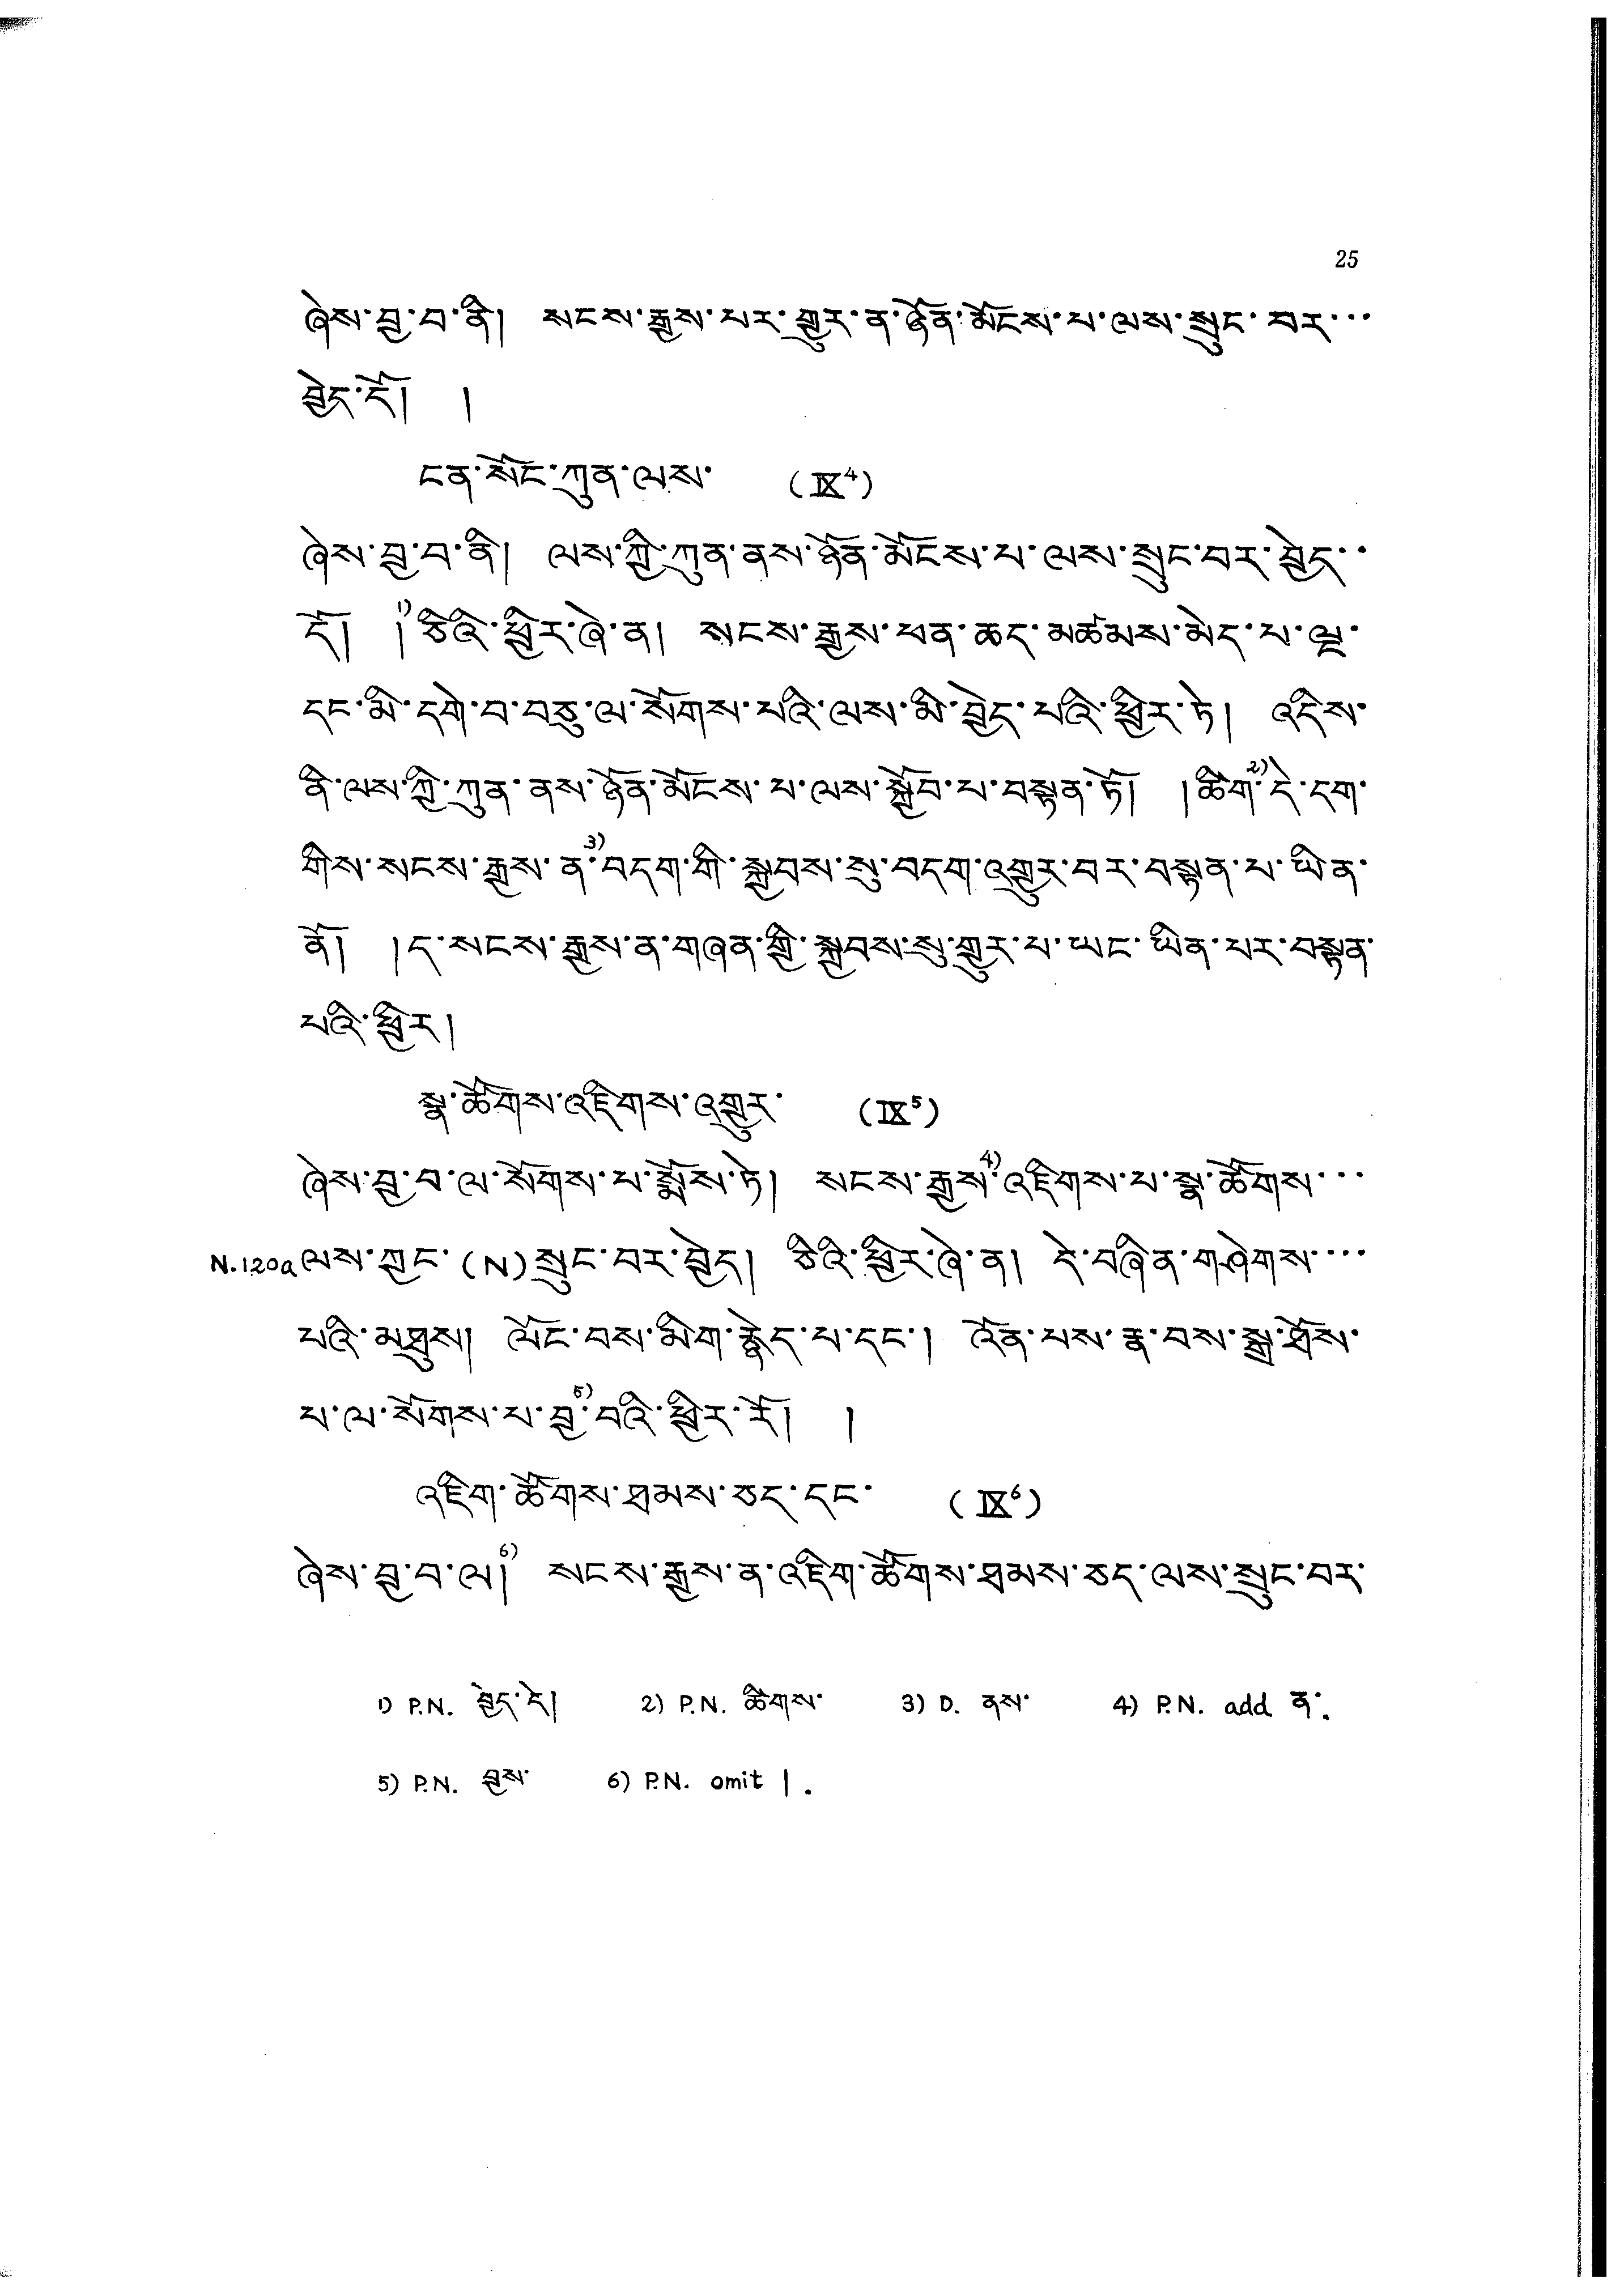 25
ཞེས་བྱ་བ་ནི། སངས་རྒྱས་པར་གྱུར་ན་ཉོན་མོངས་པ་ལས་སྲུང་བར་་་
བྱེད་དོ། །
ངན་སོང་ཀུན་ལས་ (IX⁴)
ཞེས་བྱ་བ་ནི། ལས་ཀྱི་ཀུན་ནས་ཉོན་མོངས་པ་ལས་སྲུང་བར་བྱེད་་
དོ། །¹⁾ཅིའི་ཕྱིར་ཞེ་ན། སངས་རྒྱས་ཕན་ཆད་མཚམས་མེད་པ་ལྔ་
དང་མི་དགེ་བ་བཅུ་ལ་སོགས་པའི་ལས་མི་བྱེད་པའི་ཕྱིར་ཏེ། འདིས་
ནི་ལས་ཀྱི་ཀུན་ནས་ཉོན་མོངས་པ་ལས་སྐྱོབ་པ་བསྟན་ཏོ། །ཚིག་²⁾དེ་དག་
གིས་སངས་རྒྱས་ན་³⁾བདག་གི་སྐྱབས་སུ་བདག་འགྱུར་བར་བསྟན་པ་ཡིན་
ནོ། །ད་སངས་རྒྱས་ན་གཞན་གྱི་སྐྱབས་སུ་གྱུར་པ་ཡང་ཡིན་པར་བསྟན་
པའི་ཕྱིར།
སྣ་ཚོགས་འཇིགས་འགྱུར་ (IX⁵)
ཞེས་བྱ་བ་ལ་སོགས་པ་སྨོས་ཏེ། སངས་རྒྱས་⁴⁾འཇིགས་པ་སྣ་ཚོགས་་་
N.120a ལས་ཀྱང་(N)སྲུང་བར་བྱེད། ཅིའི་ཕྱིར་ཞེ་ན། དེ་བཞིན་གཤེགས་་་་
པའི་མཐུས། ལོང་བས་མིག་རྙེད་པ་དང་། འོན་པས་རྣ་བས་སྒྲ་ཐོས་
པ་ལ་སོགས་པ་བྱ་⁵⁾བའི་ཕྱིར་རོ། །
འཇིག་ཚོགས་ཐམས་ཅད་དང་ (IX⁶)
ཞེས་བྱ་བ་ལ།⁶⁾ སངས་རྒྱས་ན་འཇིག་ཚོགས་ཐམས་ཅད་ལས་སྲུང་བར་
1) P.N. བྱེད་དེ། 2) P.N. ཚིགས་ 3) D. ནས་ 4) P.N. add ན་.
5) P.N. བྱས་ 6) P.N. omit །.